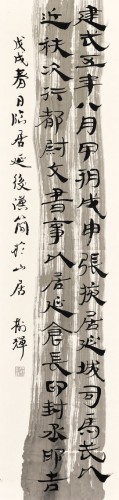 建武五年八月甲朔戊申張掖居延城司馬武以
近秩次行都尉文書事以居延倉長印封丞邯告
戊戌春日臨居延後漢簡於山居